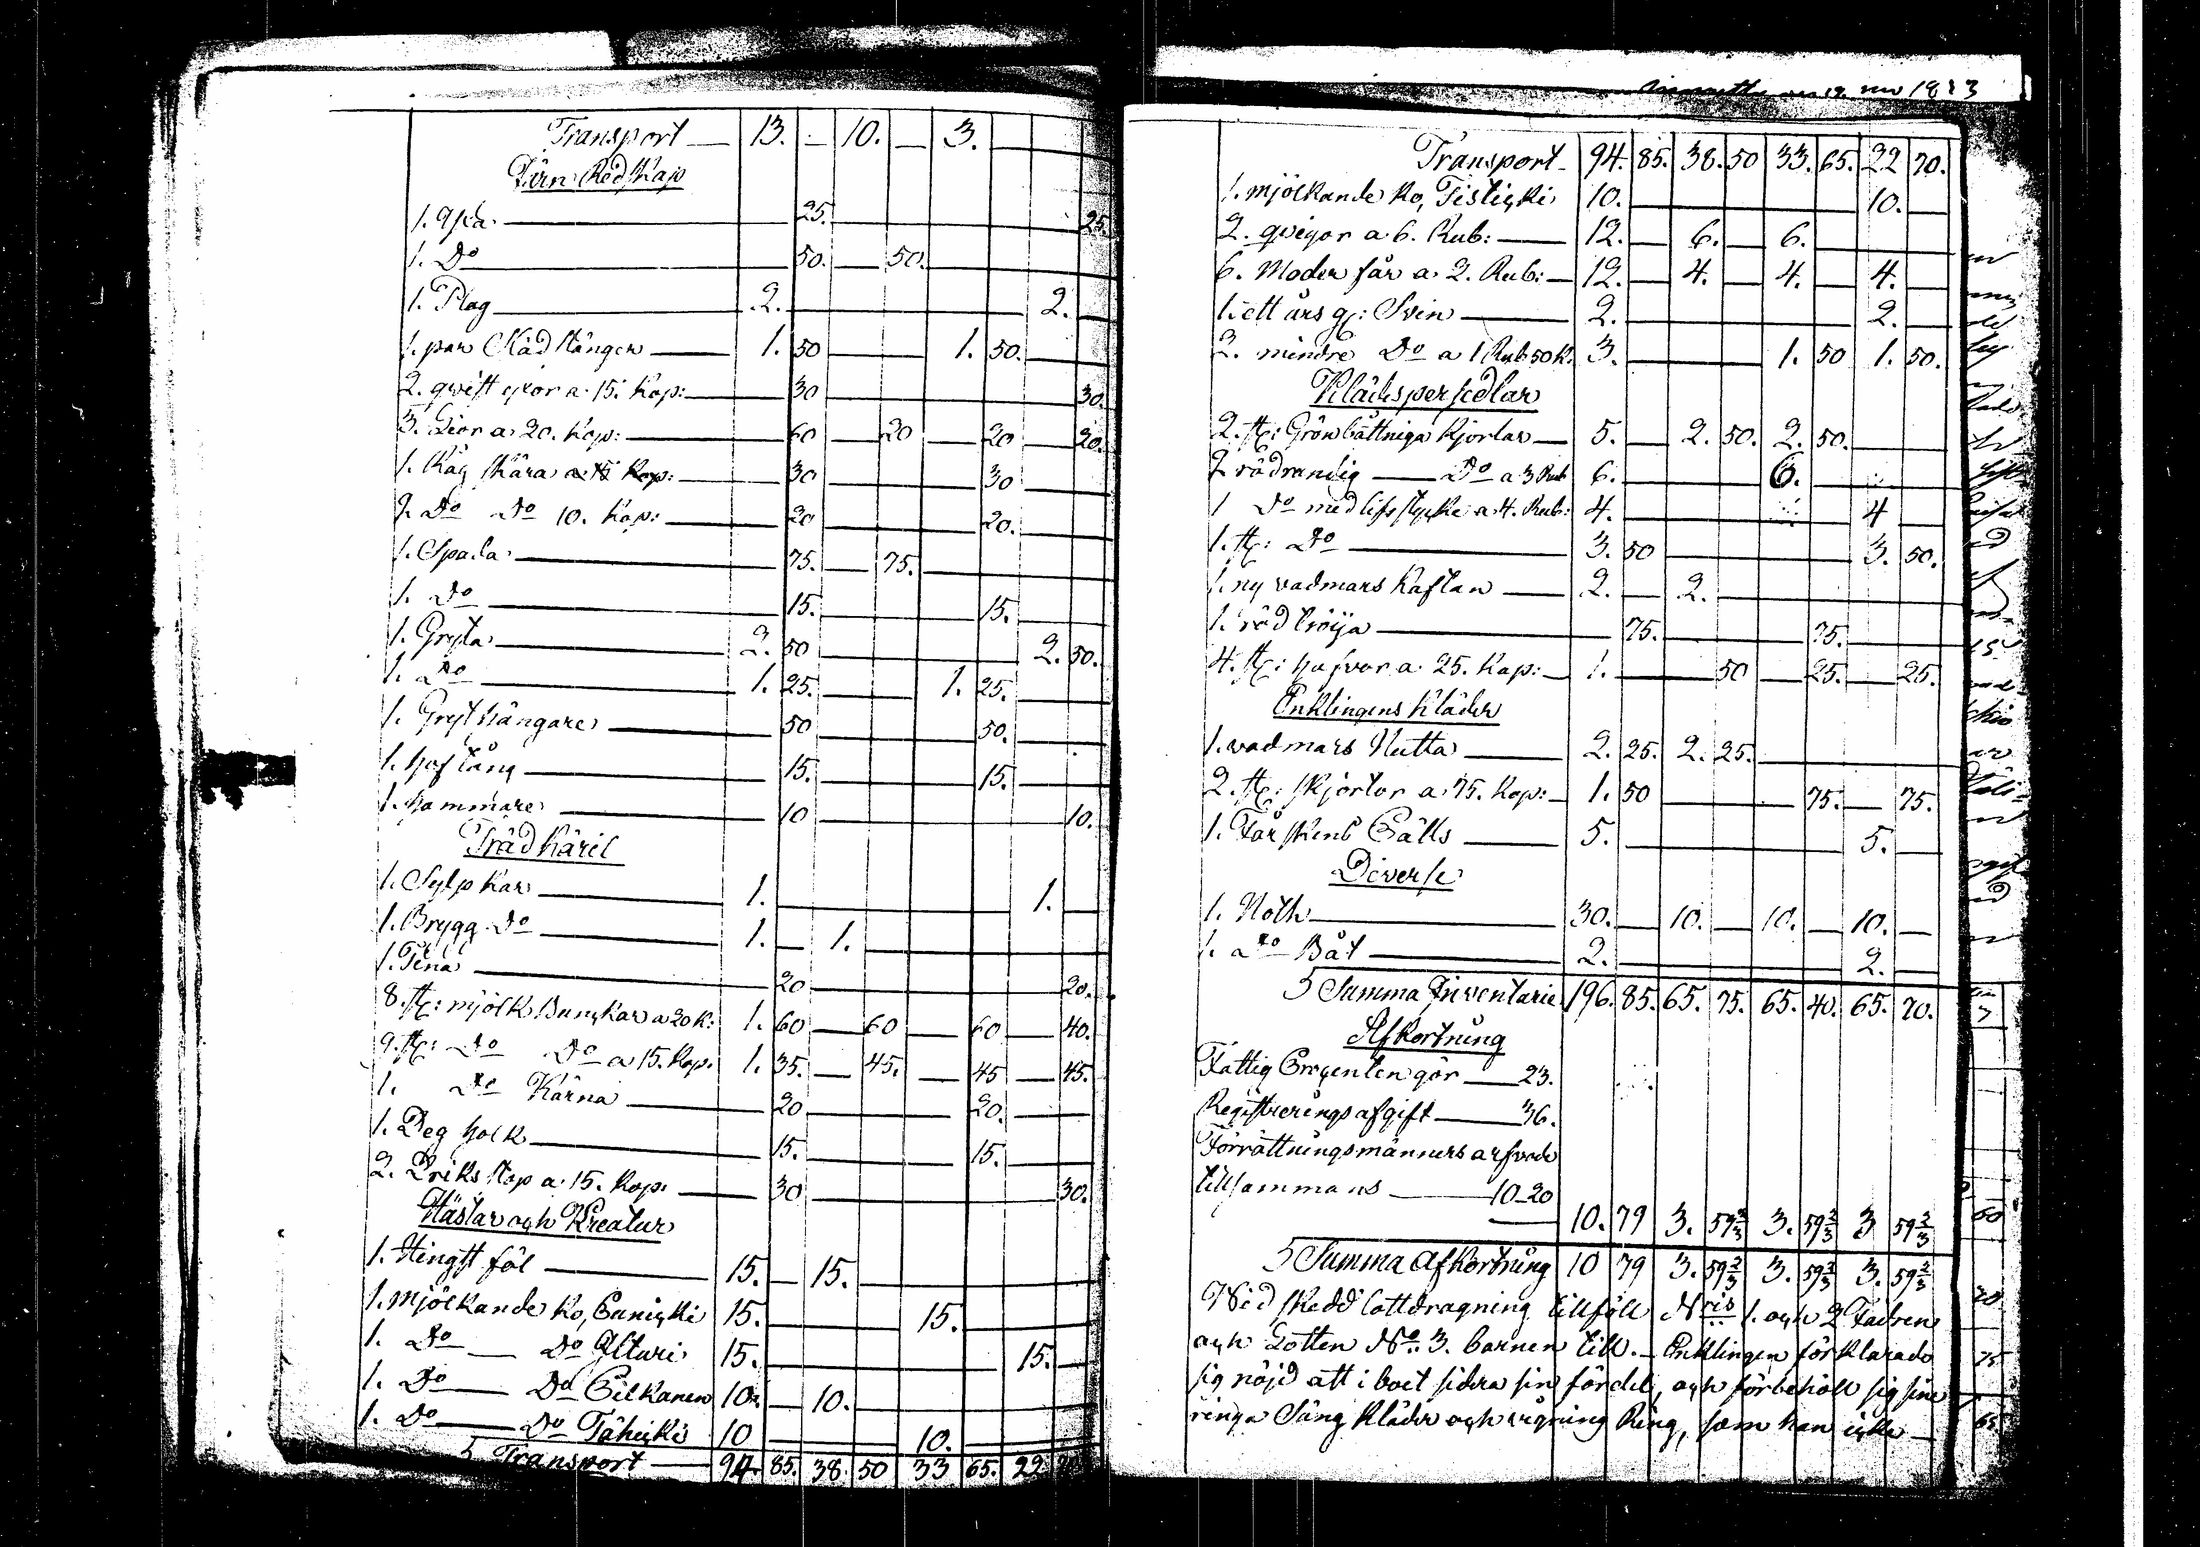 Transport — 13. — 10. — 3. —
Järn Redskap
1. Yxa — 25. — 25.
1. Do — 50. — 50.
1. Plog — 2. — 2. —
1. par Rädstänger — 1. 50 — 1. 50. —
2. qvist yxor a 15. Kop: — 30 — 30.
3. Lior a 20. Kop: — 60 — 20 — 20 — 20.
1. Råg skära a 15 Kop: — 30 — 30
2. Do Do 10. Kop: — 20 — 20.
1. Spada — 75. — 75.
1. Do — 15. — 15.
1. Gryta — 2. 50 — 2. 50.
1. Do — 1. 25. — 1. 25.
1. Grythängare — 50 — 50.
1. hoftång — 15. — 15.
1. hammare — 10 — 10.
Trädkäril
1. Sylp kar — 1. — 1. —
1. Brygg Do — 1. — 1. —
1. Tena — 20 — 20.
8. st: mjölk Bunckar a 20 K: 1. 60 — 60 — 60 — 40.
9. st: Do Do a 15. Kop. 1. 35. — 45. — 45 — 45.
1. Do Kärna — 20 — 20.
1. Deg holk — 15. — 15.
2. Driks stop a 15. Kop: — 30 — 30.
Hästar och Kreatur
1. Hingst föl — 15. — 15. —
1. mjölkande ko, Eunicki 15. — 15. —
1. Do — Do Iltari 15. — 15. —
1. Do — Do Eilkanen 10. — 10. —
1. Do — Do Tähicki 10 — 10. —
Transport — 94. 85. 38. 50 33 65. 22.
1823
Transport 94. 85. 38. 50 33. 65. 22 70.
1. mjölkande ko, Tisticki 10. — 10. —
2. qvigor a 6. Rub: — 12. — 6. — 6. —
6. Moder får a 2. Rub: — 12. — 4. — 4. — 4. —
1. ett års g: Svin — 2. — 2. —
2. mindre Do a 1 Rub 50 K. 3. — 1. 50 1. 50.
Klädspersedlar
2. st: Grönbåttniga Kjortlar — 5. — 2. 50. 2. 50. —
2 rödrandig — Do a 3 Rub 6. — 6. —
1 Do med lifstycke a 4. Rub: 4. — 4 —
1. st: Do — 3. 50 — 3. 50.
1. ny vadmars Kaftan — 2. — 2. —
1. röd tröija — 75. — 75. —
4. st: hufvor a 25. Kop: — 1. — 50 — 25. — 25.
Enklingens kläder
1. vadmars Kutta — 2. 25. 2. 25. —
2. st: skjortor a 75. Kop: — 1. 50 — 75. — 75.
1. Får skins Pälls — 5. — 5. —
Diverse
1. Noth — 30. — 10. — 10. — 10. —
1. Do Båt — 2. — 2. —
Summa Inventarie 196. 85. 65. 75. 65. 40. 65. 70.
Afkortning
Fattig Procenten gör — 23.
Registreringsafgift — 36.
Förrättningsmännens arfvode
tillsammans — 10 20
— 10. 79 3. 59 2/3 3. 59 2/3 3 59 2/3
Summa Afkortning 10 79 3. 59 2/3 3. 59 2/3 3. 59 2/3
Vid skedd lottdragning tillföll Nris 1. och 2 Fadren
och Lotten No. 3. barnen till. — Enklingen förklarade
sig nöjd att i boet sidra sin fördel, och förbehöll sig sine
ringa Säng kläder och vigning Ring, som han icke —